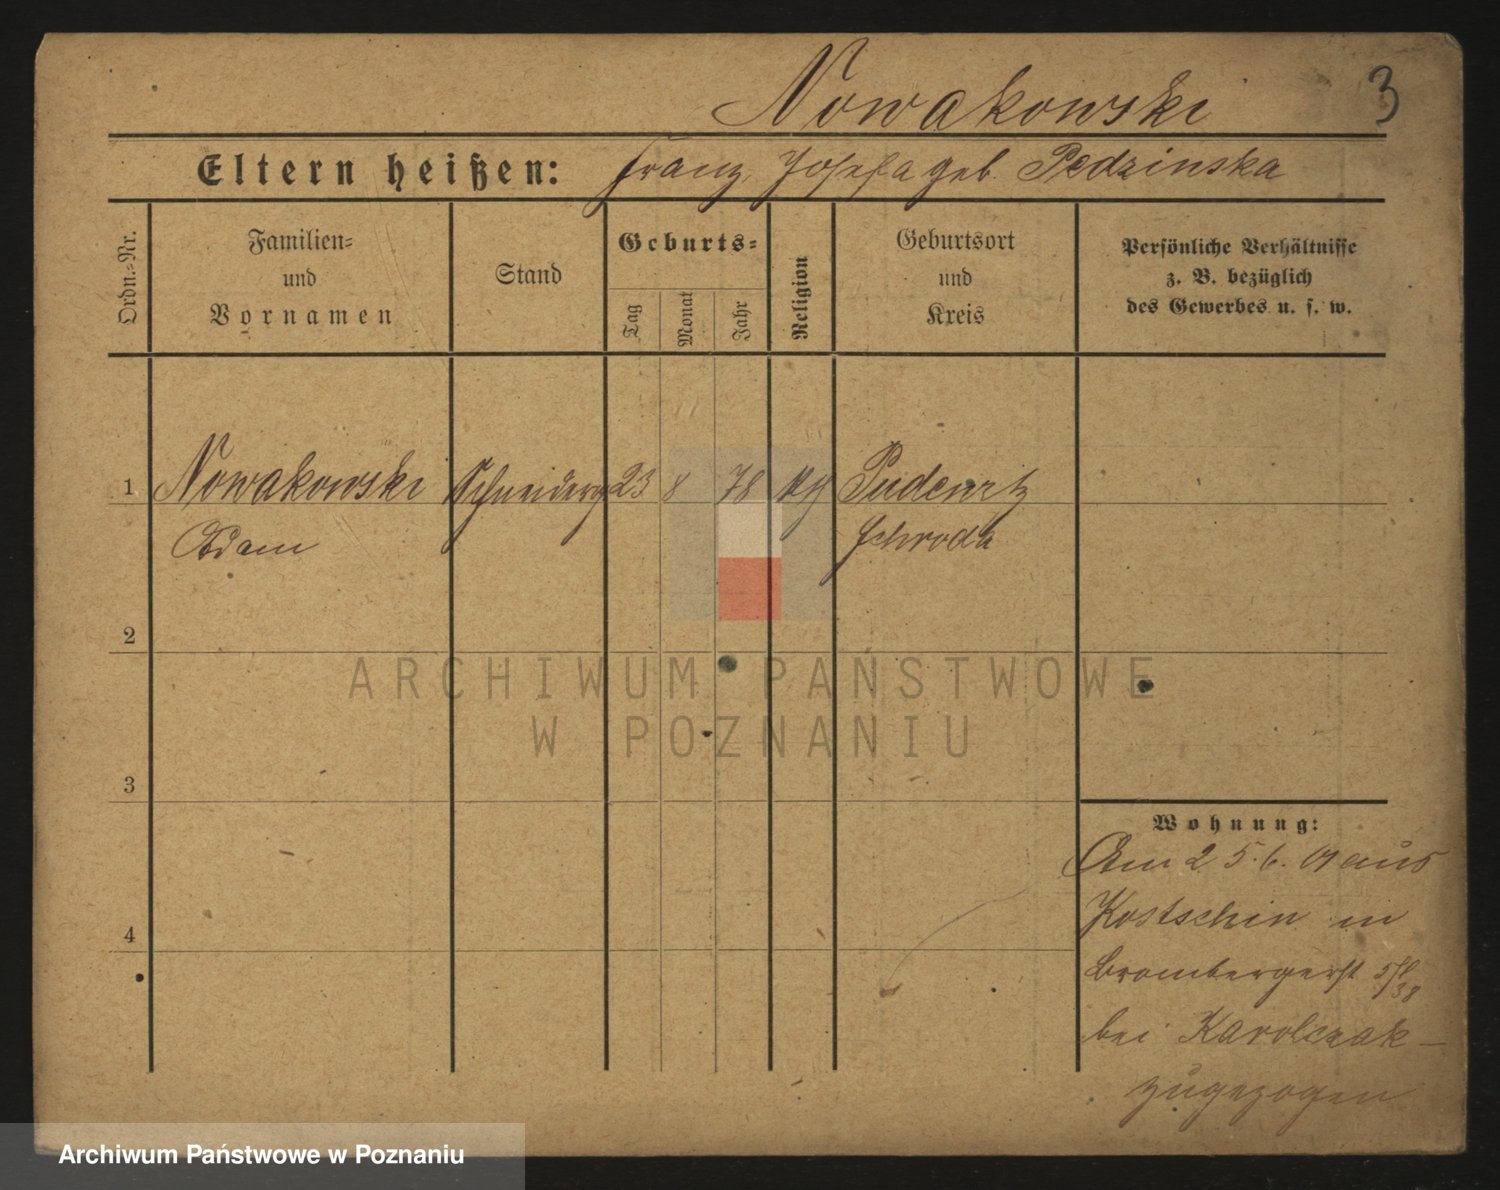 Nowakowski
3
Eltern heißen: Franz, Josefa geb. Pedzinska
Ordn.-Nr.
Familien-
und
Vornamen
Stand
Geburts-
Tag
Monat
Jahr
Religion
Geburtsort
und
Kreis
Persönliche Verhältnisse
z. B. bezüglich
des Gewerbes u. s. w.
1 Nowakowski Schneiderg 23 8 78 Pudewitz
Adam Schroda
2
ARCHIWUM PAŃSTWOWE
W POZNANIU
3
Wohnung:
Am 25.6.01 aus
Kostschin in
4
Brombergerst
bei Karolczak-
zugezogen
Archiwum Państwowe w Poznaniu